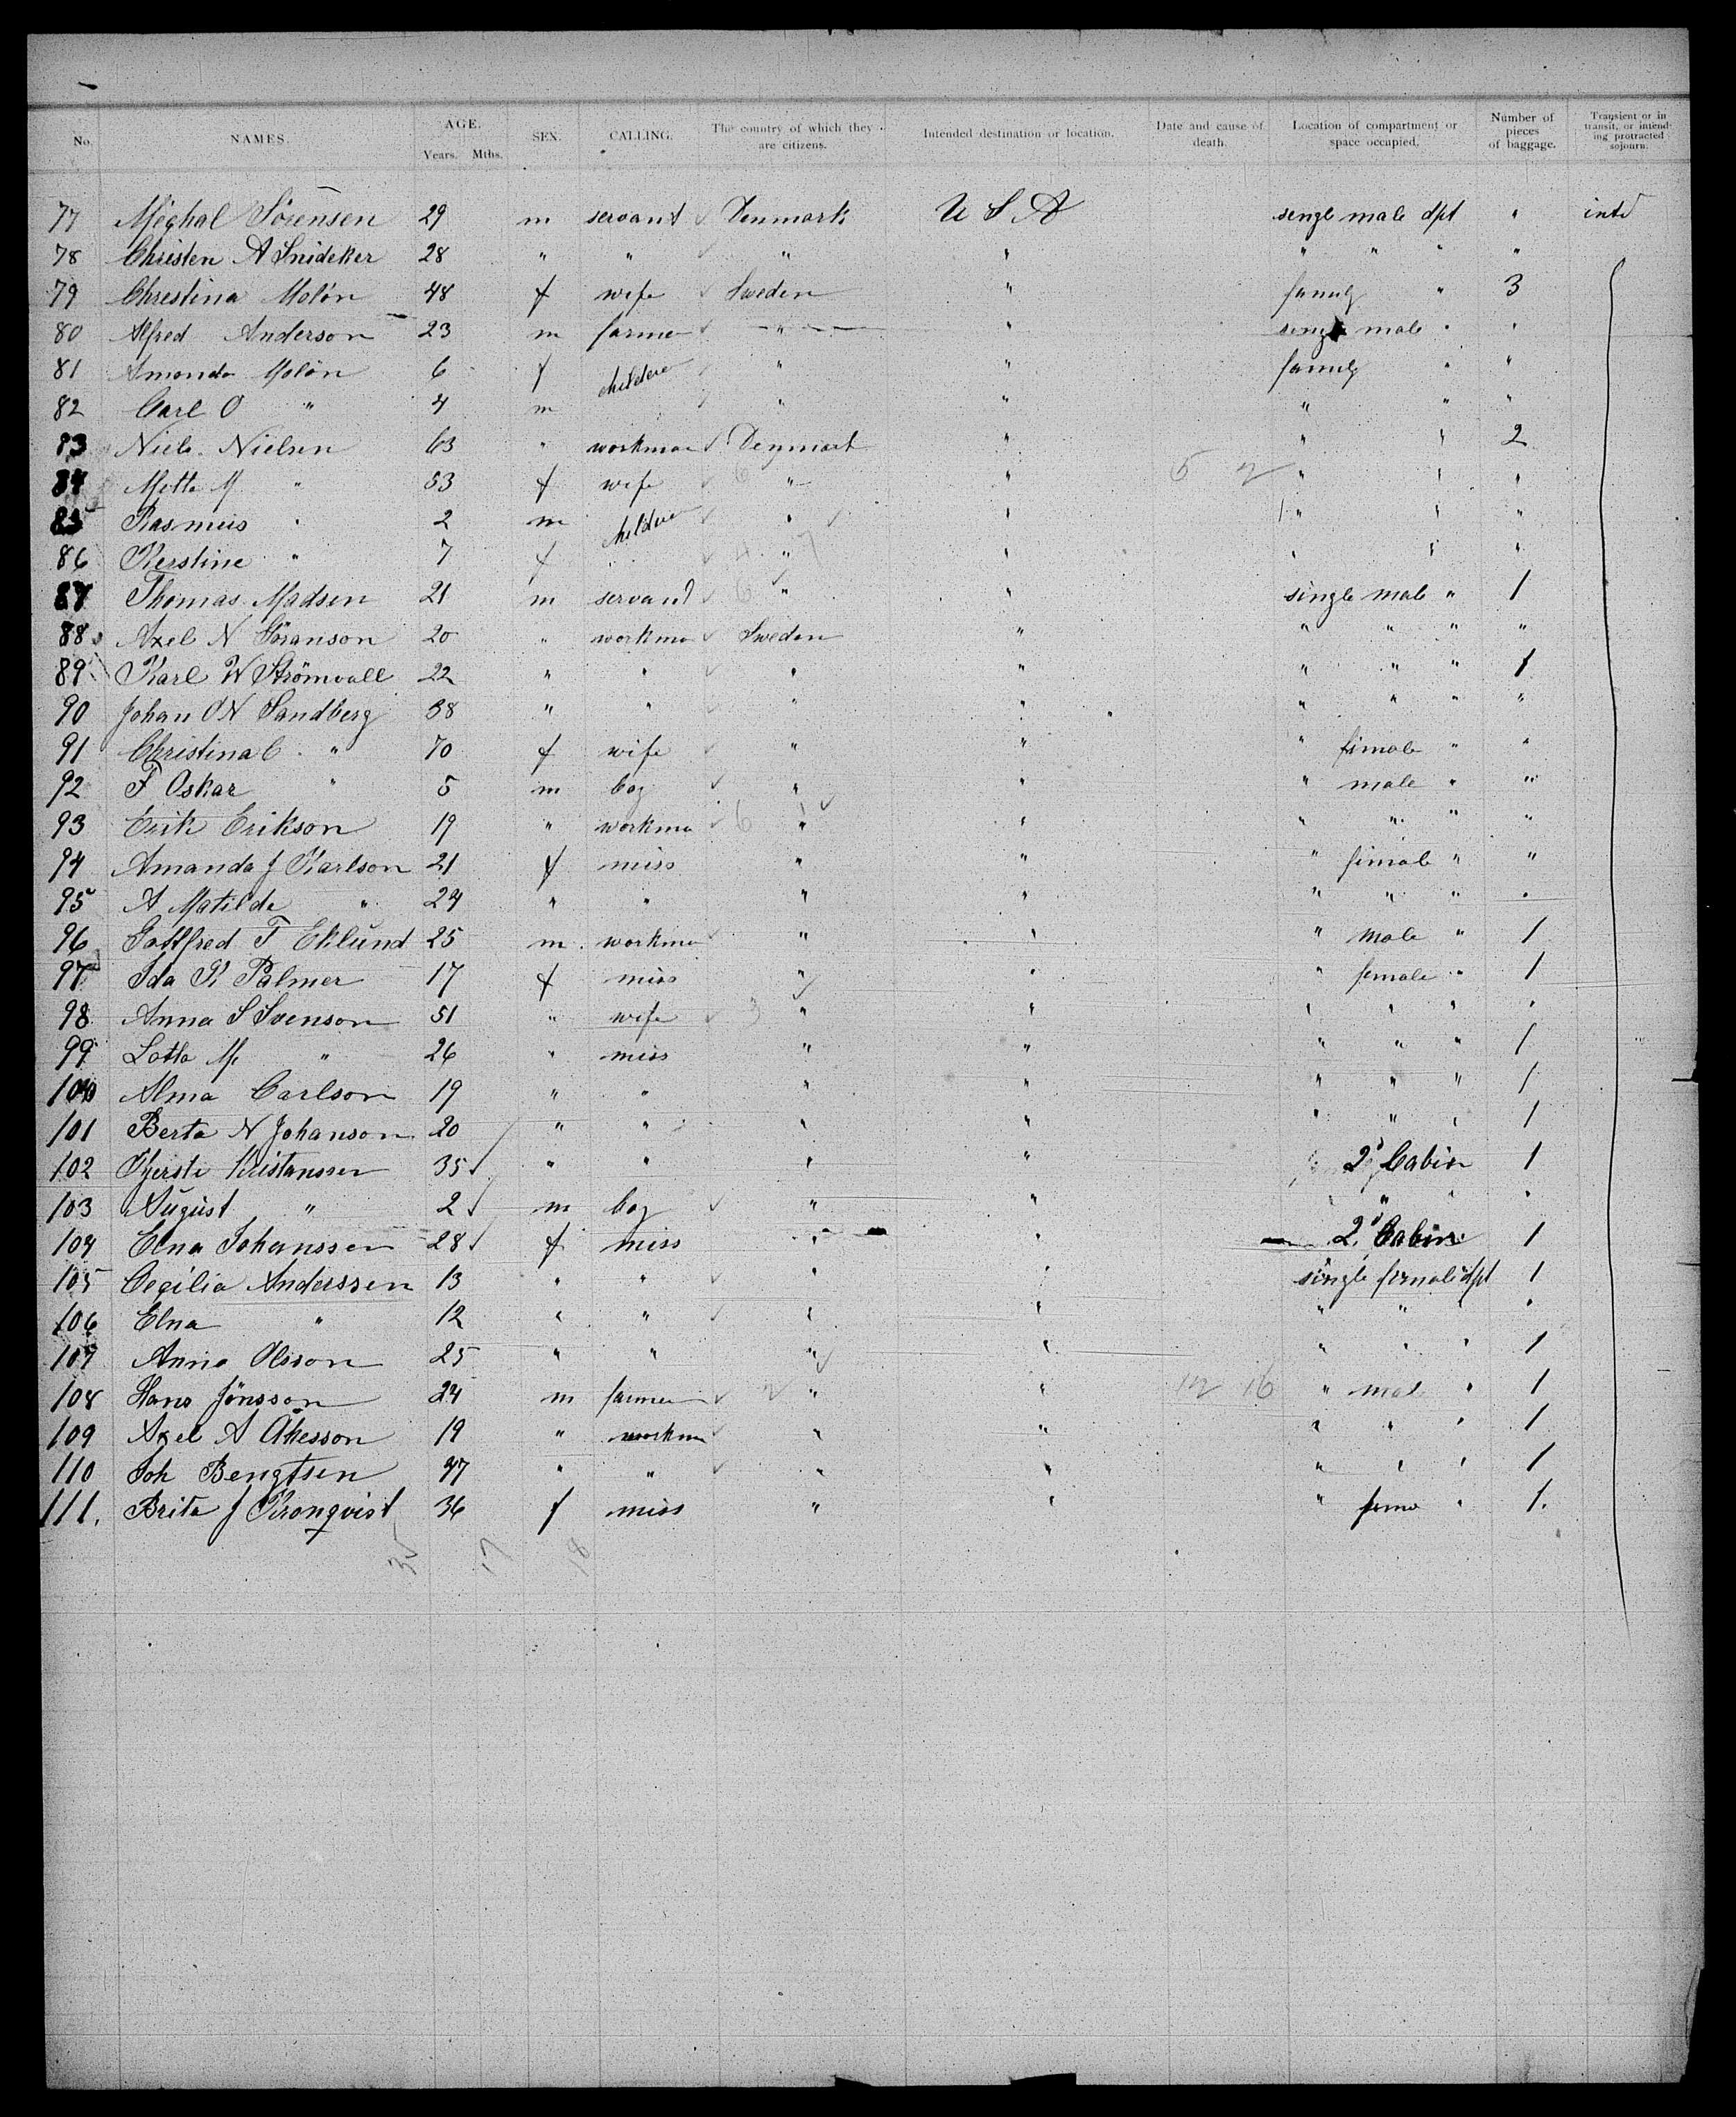 No. NAMES. AGE. Years. Mths. SEX. CALLING. The country of which they are citizens. Intended destination or location. Date and cause of death. Location of compartment or space occupied. Number of pieces of baggage. Transient or in transit, or intending protracted sojourn.
77 Mighal Sörensen 29 m servant Denmark U S A sengle male dpt "
78 Christen A Snideker 28 " " " " " " " "
79 Chrestina Molón 48 f wife Sweden " family " 3
80 Alfred Anderson 23 m farmer " " single male " "
81 Amanda Molón 6 f " " family " "
82 Carl O " 4 m " " " " "
83 Niels Nielsen 63 " workman " " " 2
84 Mette M " 53 f wife 6 " " 5 " " "
85 Rasmus " 2 m " " " " "
86 Kerstine " 7 f " " " " "
87 Thomas Madsen 21 m servant 6 " " single male " 1
88 Axel N Göranson 20 " workma Sweden " " " " "
89 Karl W Strömvall 22 " " " " " " " 1
90 Johan O N Sandberg 38 " " " " " " " "
91 Christina C " 70 f wife " " " fimale " "
92 F Oskar " 5 m boy " " " male " "
93 Erik Erikson 19 " workma 6 " " " " " "
94 Amanda J Karlson 21 f miss " " " fimale " "
95 A Matilde " 24 " " " " " " " "
96 Gottfred F Eklund 25 m workma " " " male " 1
97 Ida K Palmer 17 f miss " " " female " 1
98 Anna S Svenson 51 " wife 3 " " " " " "
99 Lotta M " 26 " miss " " " " " 1
100 Alma Carlson 19 " " " " " " " 1
101 Berta N Johanson 20 " " " " " " " 1
102 Kjersti Kristanssen 35 " " " " 2d Cabin 1
103 August " 2 m boy " " " " " "
104 Elna Johanssen 28 f miss " " 2d Cabin 1
105 Cecilia Anderssen 13 " " " " single fimale dpt 1
106 Elna " 12 " " " " " " " "
107 Anna Olsson 25 " " " " " " " 1
108 Hans Jönsson 24 m farmer " " 16 " mal " 1
109 Axel A Åkesson 19 " workma " " " " " 1
110 Joh Bengtsen 37 " " " " " " " 1
111. Brita J Kronqvist 36 f miss " " " fema " 1.
35 17 18